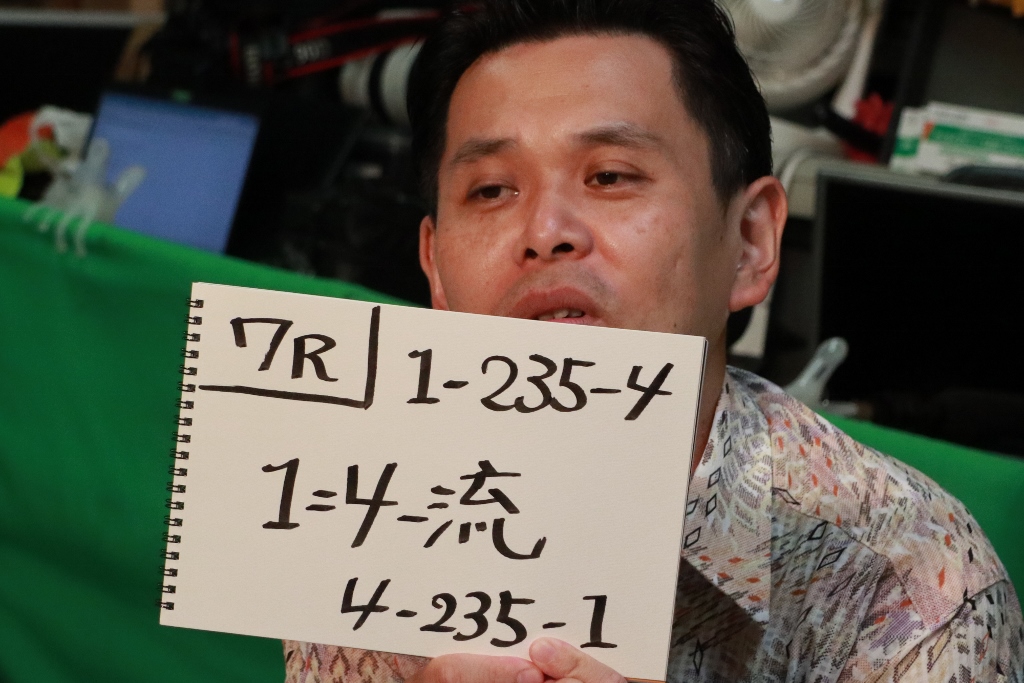 7R
1-235-4
1=4-流
4-235-1